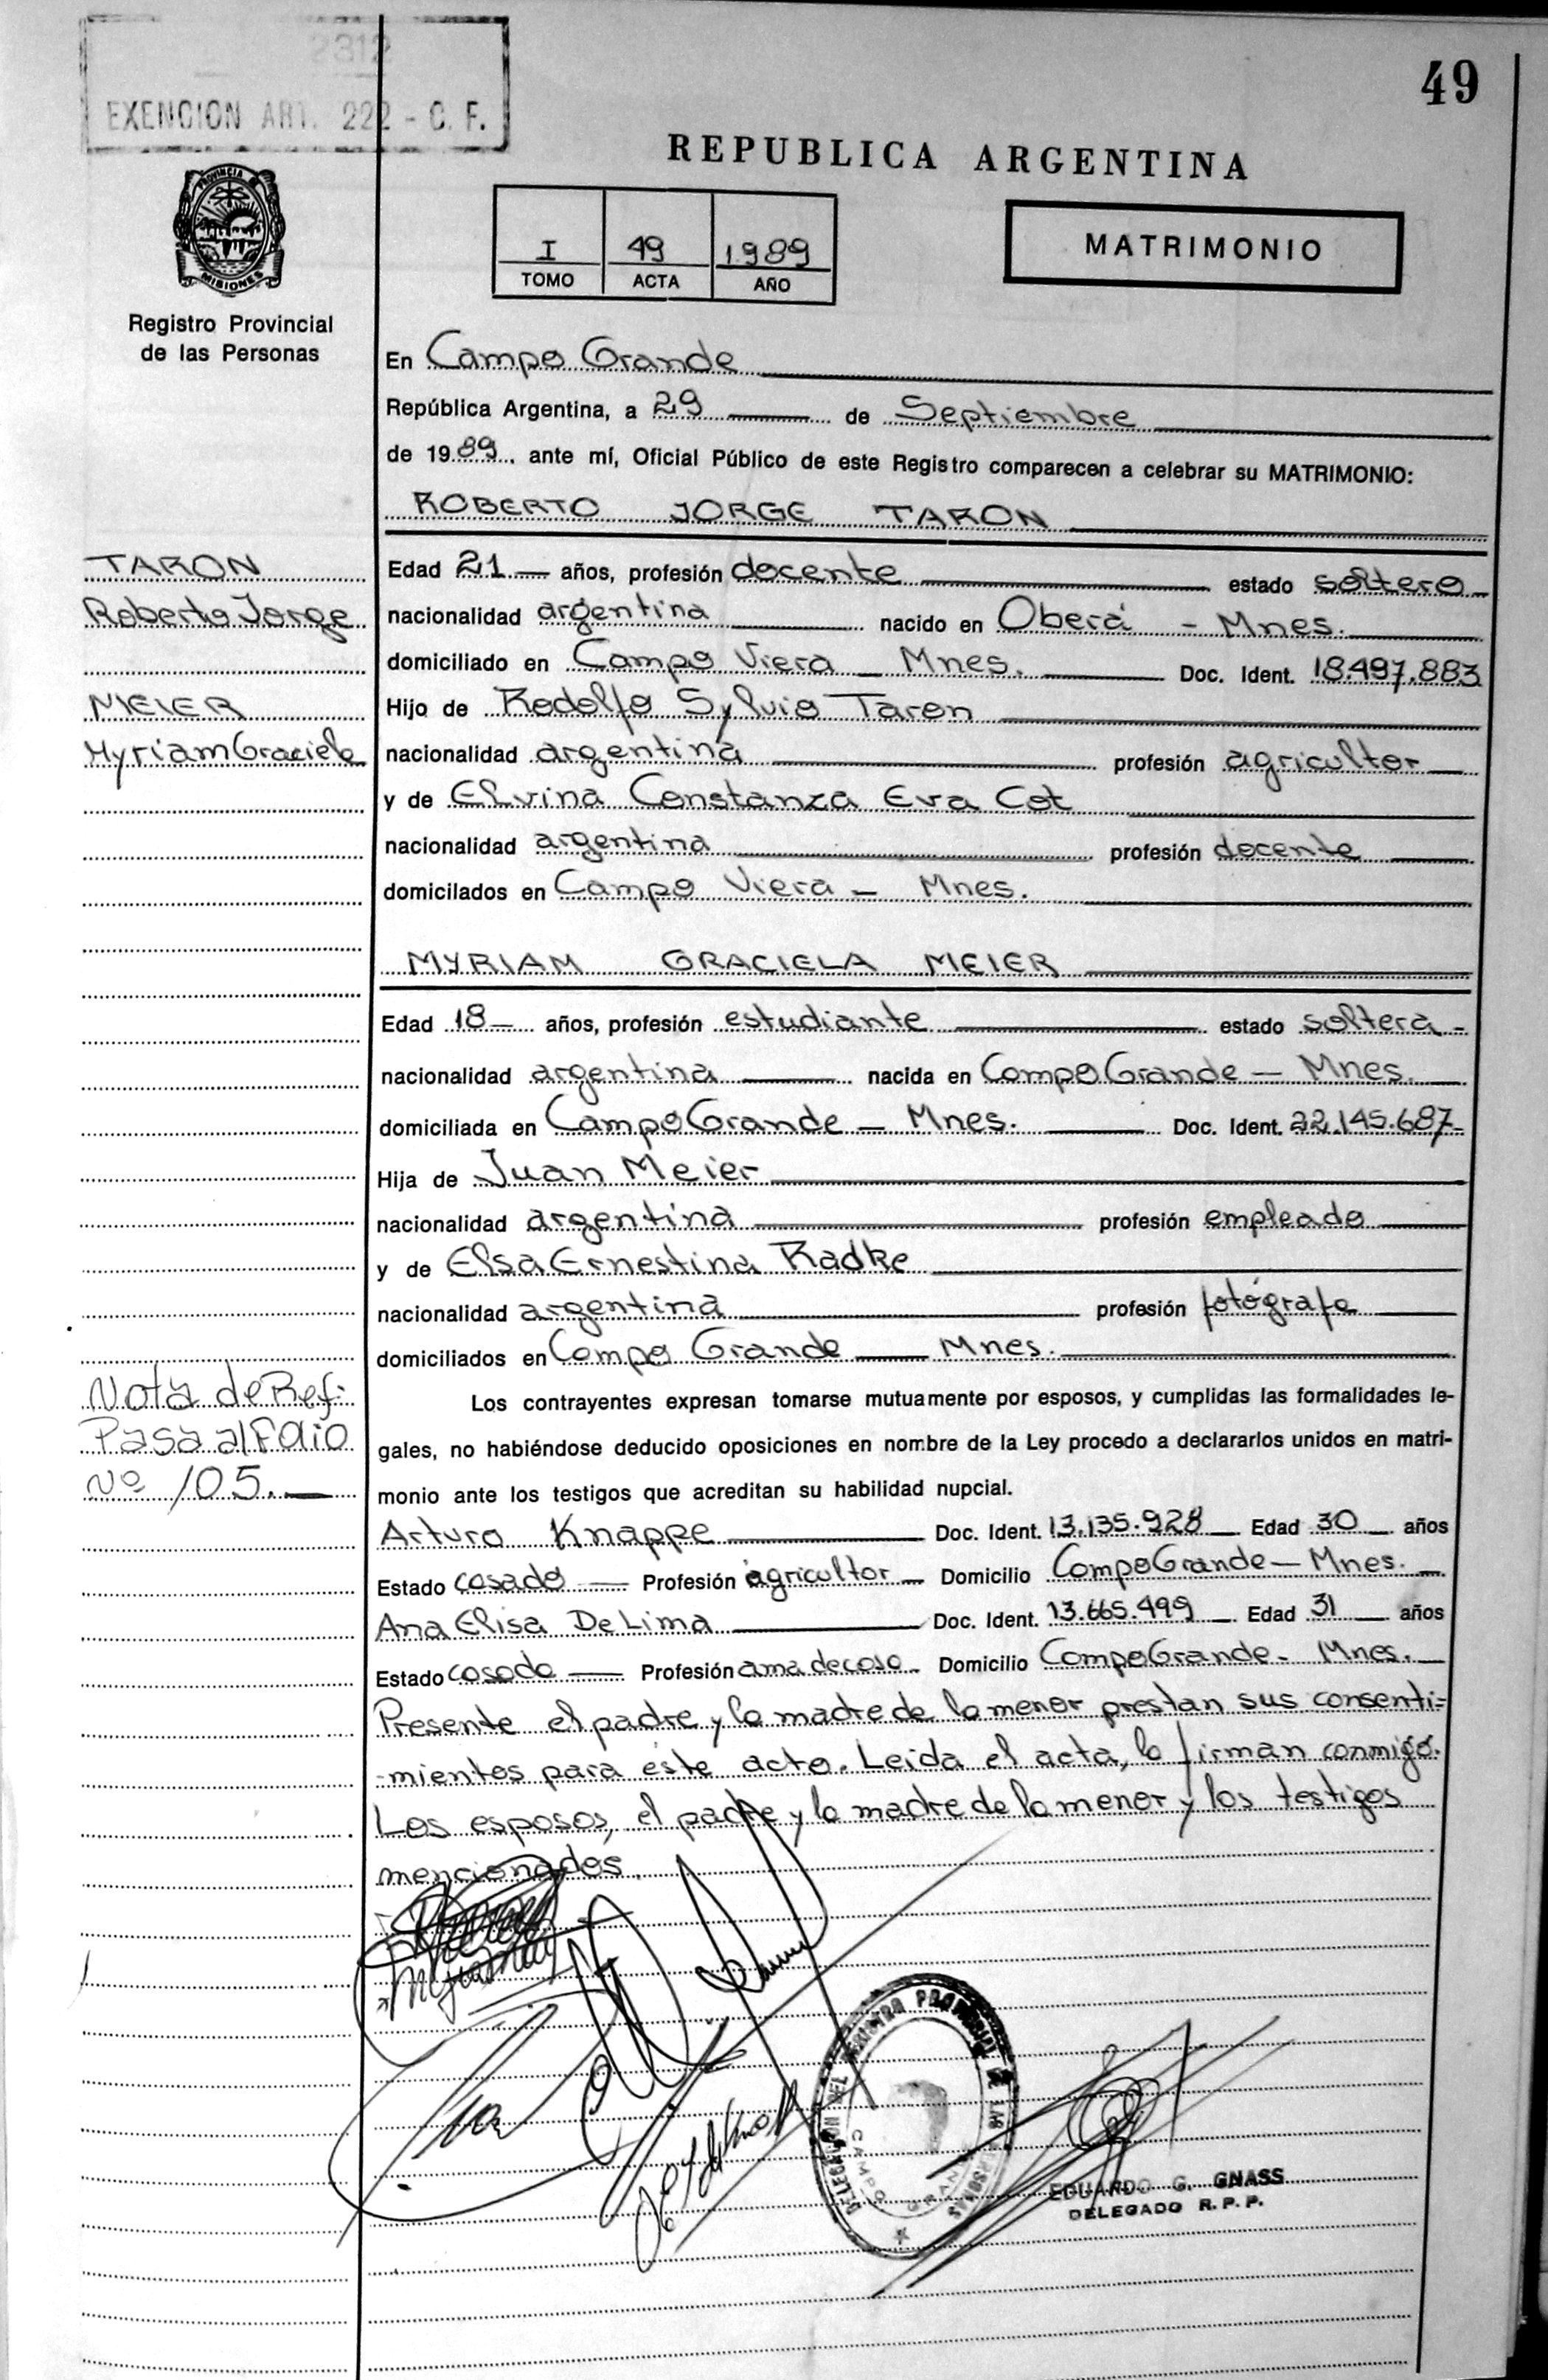 2312
EXENCION ART. 222 - C. F.
49
REPUBLICA ARGENTINA
PROVINCIA DE
MISIONES
Registro Provincial
de las Personas
I 49 1989
TOMO ACTA AÑO
MATRIMONIO
En Campo Grande
República Argentina, a 29 de Septiembre
de 1989. ante mí, Oficial Público de este Registro comparecen a celebrar su MATRIMONIO:
ROBERTO JORGE TARON
TARON
Roberto Jorge
MEIER
Myriam Graciela
Edad 21 años, profesión docente estado soltero
nacionalidad argentina nacido en Oberá - Mnes.
domiciliado en Campo Viera - Mnes. Doc. Ident. 18.497.883
Hijo de Rodolfo Sylvio Taron
nacionalidad argentina profesión agricultor
y de Elvina Constanza Eva Cot
nacionalidad argentina profesión docente
domicilados en Campo Viera - Mnes.
MYRIAM GRACIELA MEIER
Edad 18 años, profesión estudiante estado soltera -
nacionalidad argentina nacida en Campo Grande - Mnes.
domiciliada en Campo Grande - Mnes. Doc. Ident. 22.145.687-
Hija de Juan Meier
nacionalidad argentina profesión empleado
y de Elsa Ernestina Radke
nacionalidad argentina profesión fotógrafa
domiciliados en Campo Grande - Mnes.
Nota de Ref:
Pasa al Folio
Nº 105.-
Los contrayentes expresan tomarse mutuamente por esposos, y cumplidas las formalidades le-
gales, no habiéndose deducido oposiciones en nombre de la Ley procedo a declararlos unidos en matri-
monio ante los testigos que acreditan su habilidad nupcial.
Arturo Knappe Doc. Ident. 13.135.928 Edad 30 años
Estado casado Profesión agricultor Domicilio Campo Grande - Mnes.
Ana Elisa De Lima Doc. Ident. 13.665.499 Edad 31 años
Estado casada Profesión ama de casa Domicilio Campo Grande - Mnes.
Presente el padre y la madre de la menor prestan sus consenti-
-mientos para éste acto. Leida el acta, la firman conmigo.
Los esposos, el padre y la madre de la menor y los testigos
mencionados.
DELEGACION DEL REGISTRO PROVINCIAL DE LAS PERSONAS
CAMPO GRANDE
EDUARDO G. GNASS
DELEGADO R. P. P.